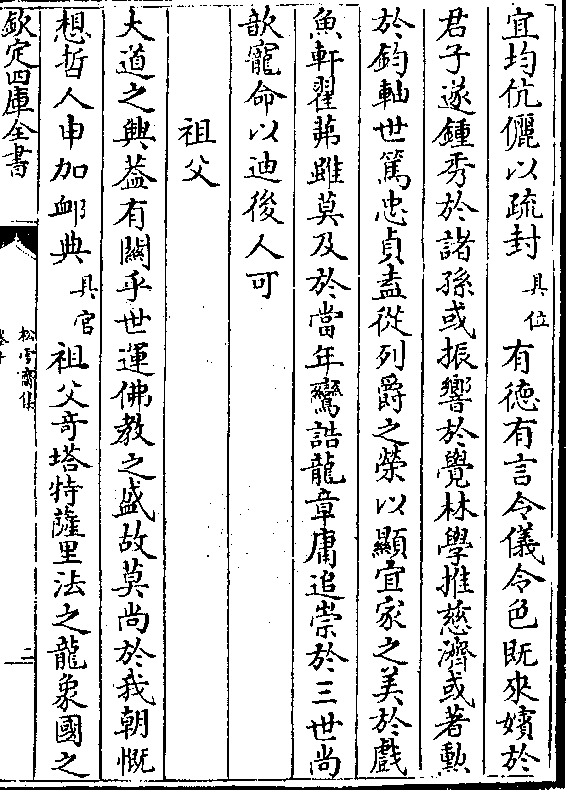 宜均伉儷以疏封具位有德有言令儀令色既來嬪於
君子遂鍾秀於諸孫或振響於覺林學推慈濟或著勲
於鈞軸世篤忠貞盍從列爵之榮以顯宜家之美於戲
魚軒翟茀雖莫及於當年鸞誥龍章庸追崇於三世尚
歆寵命以迪後人可
祖父
大道之興蓋有關乎世運佛教之盛故莫尚於我朝慨
想哲人申加卹典具官祖父奇塔特薩里法之龍象國之
欽定四庫全書
松雪齋集
二